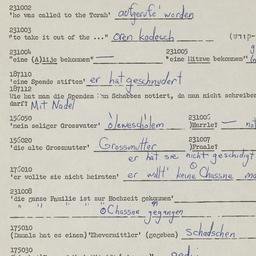 231002
'he was called to the Torah' aufgerufe' worden
231003
"to take it out of the ..." oren kodesch
231004 231005
"eine (A)lije bekommen" — "eine Mitzwe bekommen"
187110
'eine Spende stiften' er hat geschnudert
187112
Wie hat man die Spenden am Schabbes notiert, da man nicht schreiben
darf? Mit Nadel
156050 231006
'mein seliger Grossvater' òleweschòlem
156020 231007
'die alte Grossmutter' Grossmutter
er hat sie nicht geschidigt
176010
'er wollte sie nicht heiraten' er willt' keine Chassne
231008
'die ganze Familie ist zur Hochzeit gekommen'
Chassne gegangen
175010
(Damals hat es einen) 'Ehevermittler' (gegeben) Schadschen
175030